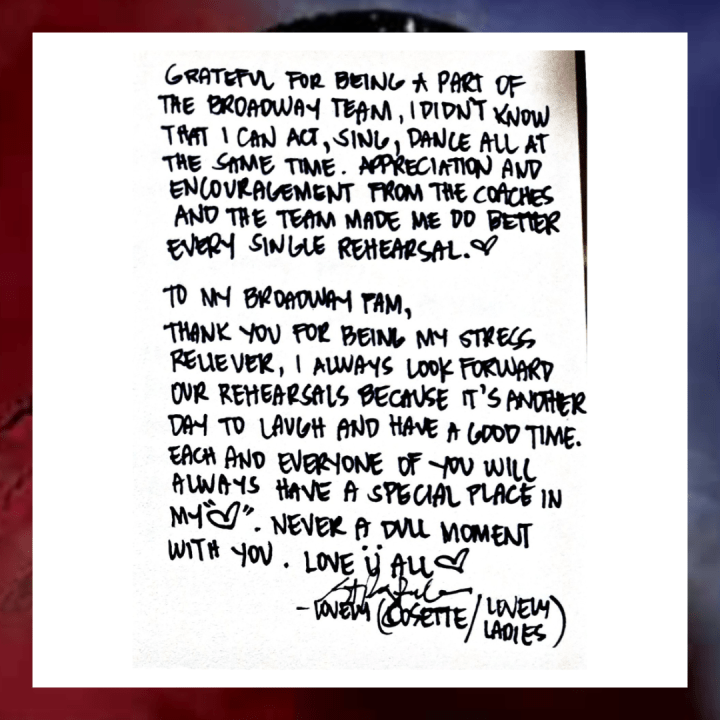 GRATEFUL FOR BEING A PART OF
THE BROADWAY TEAM, I DIDN'T KNOW
THAT I CAN ACT, SING, DANCE ALL AT
THE SAME TIME. APPRECIATION AND
ENCOURAGEMENT FROM THE COACHES
AND THE TEAM MADE ME DO BETTER
EVERY SINGLE REHEARSAL.♡
TO MY BROADWAY FAM,
THANK YOU FOR BEING MY STRESS
RELIEVER, I ALWAYS LOOK FORWARD
OUR REHEARSALS BECAUSE IT'S ANOTHER
DAY TO LAUGH AND HAVE A GOOD TIME.
EACH AND EVERYONE OF YOU WILL
ALWAYS HAVE A SPECIAL PLACE IN
MY "♡". NEVER A DULL MOMENT
WITH YOU. LOVE Ü ALL ♡
- LOVELY (COSETTE/LOVELY
LADIES)